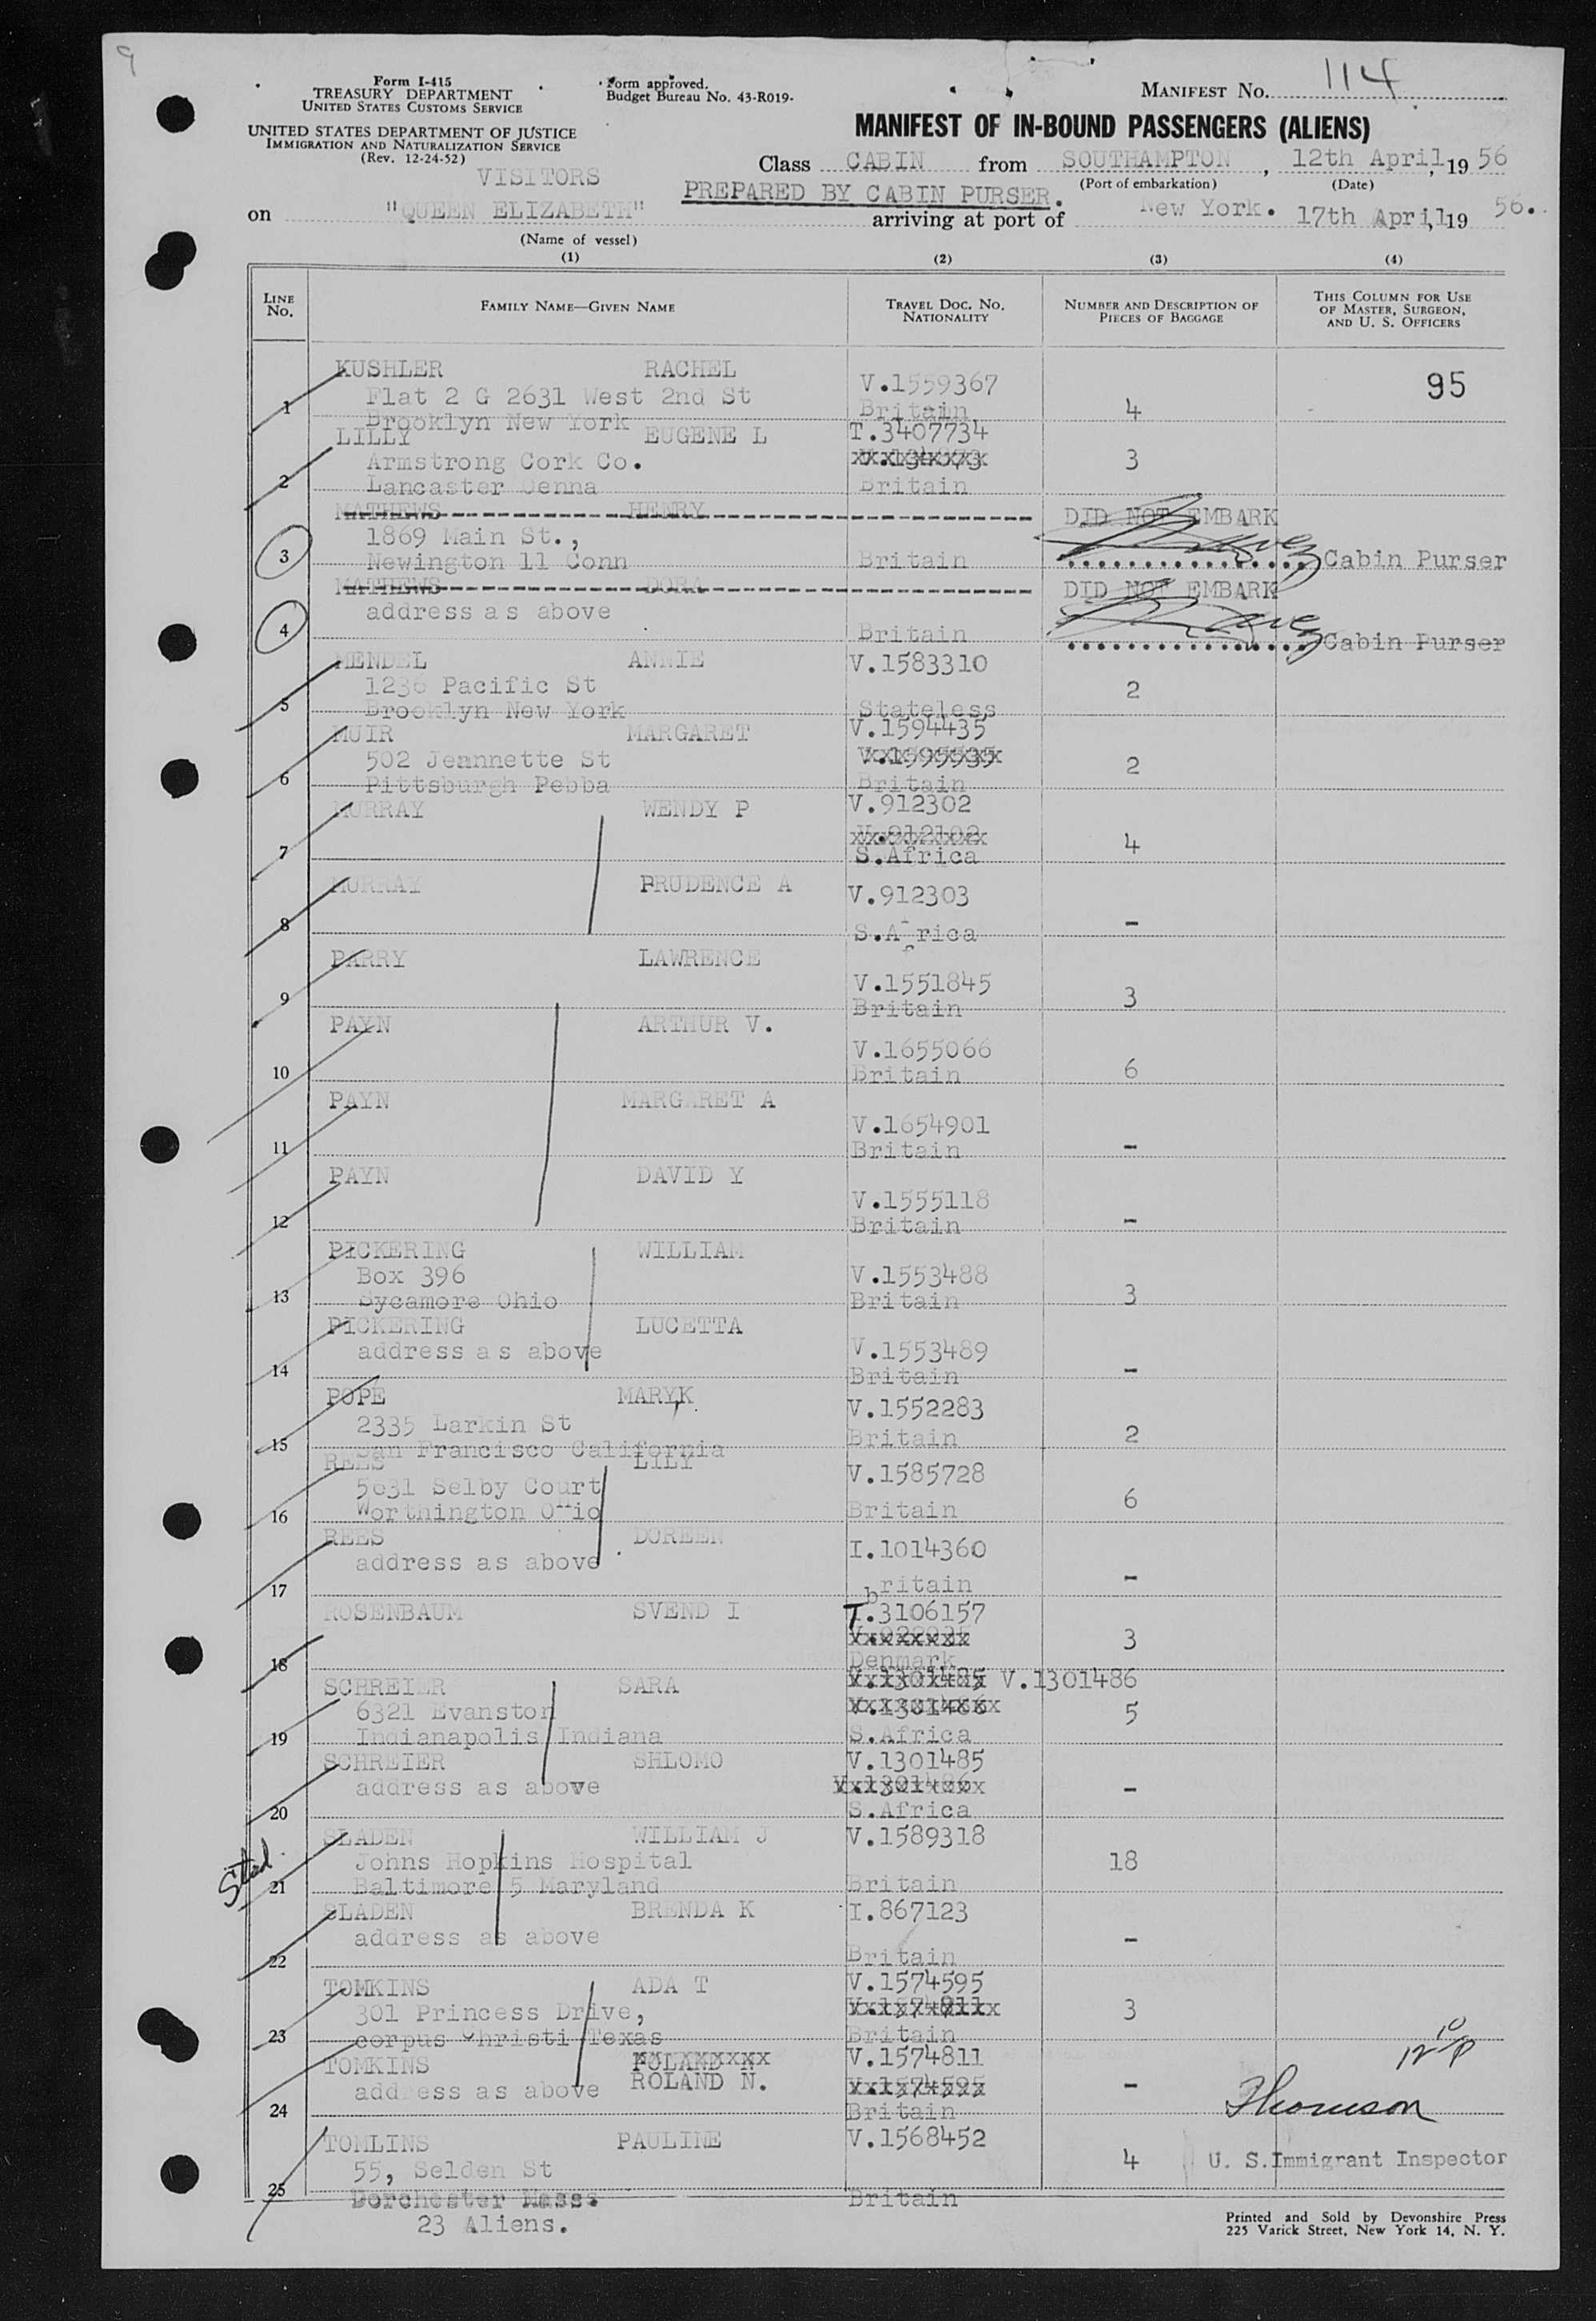 9
Form I-415
TREASURY DEPARTMENT
UNITED STATES CUSTOMS SERVICE
UNITED STATES DEPARTMENT OF JUSTICE
IMMIGRATION AND NATURALIZATION SERVICE
(Rev. 12-24-52)
Form approved.
Budget Bureau No. 43-R019.
MANIFEST NO. 114
MANIFEST OF IN-BOUND PASSENGERS (ALIENS)
VISITORS
Class CABIN from SOUTHAMPTON, 12th April, 19 56
(Port of embarkation) (Date)
PREPARED BY CABIN PURSER.
on "QUEEN ELIZABETH" arriving at port of New York. 17th April, 19 56.
(Name of vessel)
(1) (2) (3) (4)
LINE NO. FAMILY NAME—GIVEN NAME TRAVEL DOC. NO. NATIONALITY NUMBER AND DESCRIPTION OF PIECES OF BAGGAGE THIS COLUMN FOR USE OF MASTER, SURGEON, AND U. S. OFFICERS
95
KUSHLER RACHEL V.1559367
Flat 2 G 2631 West 2nd St
1 Brooklyn New York Britain 4
LILLY EUGENE L T.3407734
Armstrong Cork Co. 3
2 Lancaster Oenna Britain
MATHEWS HENRY DID NOT EMBARK
1869 Main St.,
3 Newington 11 Conn Britain Cabin Purser
MATHEWS DORA DID NOT EMBARK
address as above
4 Britain Cabin Purser
MENDEL ANNIE V.1583310
1236 Pacific St 2
5 Brooklyn New York Stateless
MUIR MARGARET V.1594435
502 Jeannette St V.1595535 2
6 Pittsburgh Pebba Britain
MURRAY WENDY P V.912302
V.912102
7 S.Africa 4
MURRAY PRUDENCE A V.912303
8 S.Africa -
PARRY LAWRENCE V.1551845
9 Britain 3
PAYN ARTHUR V. V.1655066
10 Britain 6
PAYN MARGARET A V.1654901
11 Britain -
PAYN DAVID Y V.1555118
12 Britain -
PICKERING WILLIAM
Box 396 V.1553488
13 Sycamore Ohio Britain 3
PICKERING LUCETTA
address as above V.1553489
14 Britain -
POPE MARY K V.1552283
2335 Larkin St
15 San Francisco California Britain 2
REES LILY V.1585728
5631 Selby Court
16 Worthington Ohio Britain 6
REES DOREEN I.1014360
address as above
17 britain -
ROSENBAUM SVEND I T.3106157
3
18 Denmark
SCHREIER SARA V.1301485 V.1301486
6321 Evanston V.1301486 5
19 Indianapolis Indiana S.Africa
SCHREIER SHLOMO V.1301485
address as above V.1301486 -
20 S.Africa
SLADEN WILLIAM J V.1589318
Johns Hopkins Hospital 18
21 Baltimore 5 Maryland Britain
SLADEN BRENDA K I.867123
address as above -
22 Britain
TOMKINS ADA T V.1574595
301 Princess Drive, V.1574811 3
23 corpus Christi Texas Britain
TOMKINS POLAND N V.1574811
address as above ROLAND N. V.1574595 -
24 Britain
Thomson
TOMLINS PAULINE V.1568452
55, Selden St 4 U. S.Immigrant Inspector
25 Dorchester Mass. Britain
23 Aliens.
Printed and Sold by Devonshire Press
225 Varick Street, New York 14, N. Y.